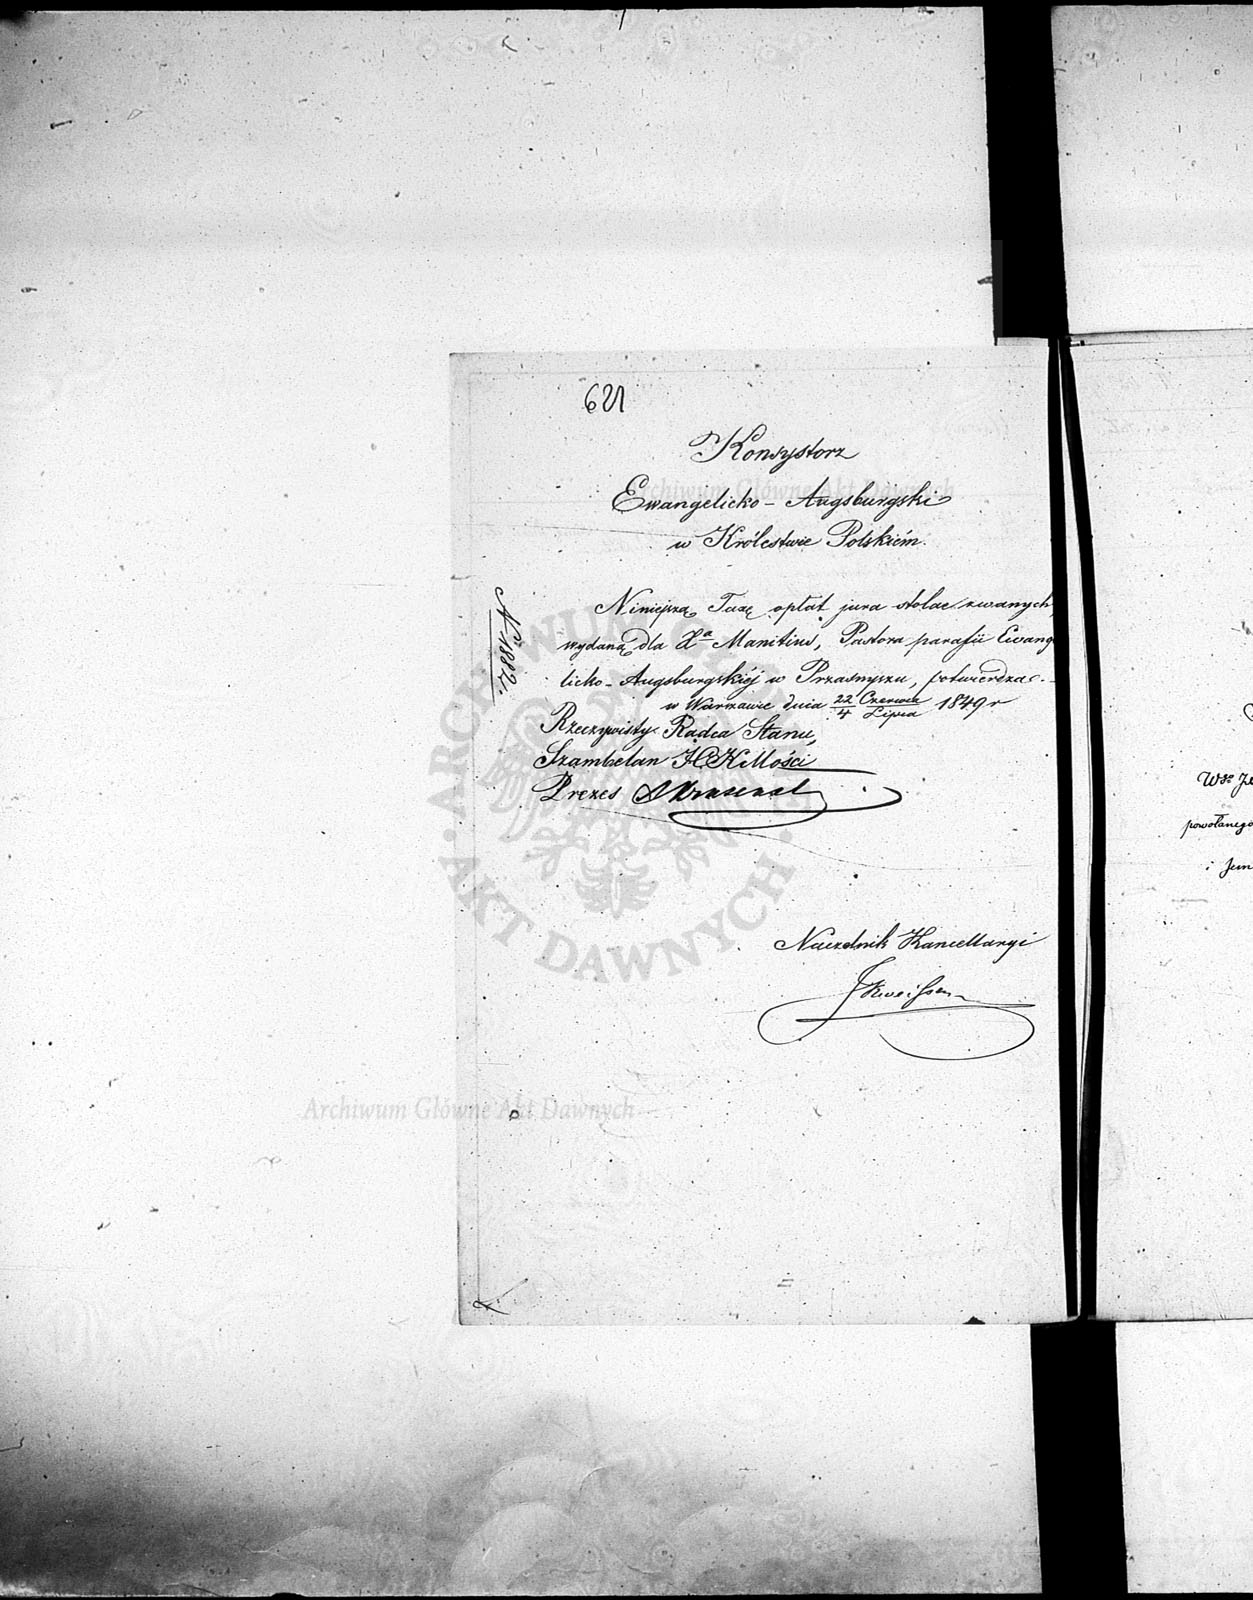 621
Konsystorz
Ewangelicko-Augsburgski
w Królestwie Polskiém.
N. 1882.
Niniejszą Taxę opłat jura stolae zwanych,
wydaną dla Xa Manitius, Pastora parafii Ewange
licko-Augsburgskiéj w Przasnyszu, potwierdza.
w Warszawie dnia 22 Czerwca / 4 Lipca 1849 r
Rzeczywisty Radca Stanu,
Szambelan JCKMości
Prezes
Naczelnik Kancellaryi
powołanego
i Jem
Archiwum Główne Akt Dawnych
ARCHIWUM GŁÓWNE AKT DAWNYCH
Archiwum Główne Akt Dawnych